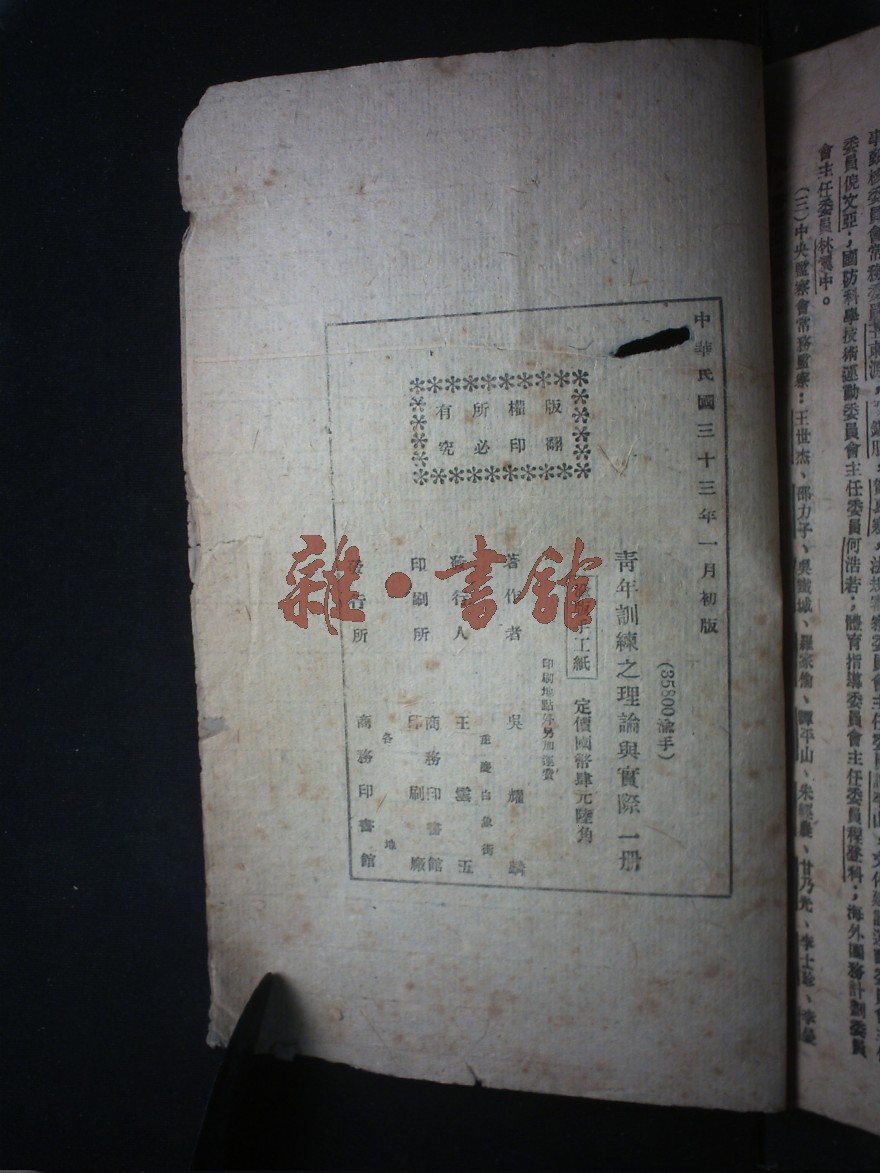 委員倪文亞；國防科學技術運動委員會主任委員何浩若；體育指導委員會主任委員程登科；海外團務計劃委員
會主任委員林
中。
（三）中央監察會常務監察：王世杰、邵力子、吳鐵城、羅家倫、譚平山、朱經農、甘乃光、李士珍、李
中華民國三十三年一月初版
(35800渝手)
青年訓練之理論與實際一册
手工紙
定價國幣肆元陸角
印刷地點外另加運費
版權所有
翻印必究
著作者 吳耀麟
發行人 王雲五
重慶白象街
印刷所 商務印書館
印刷廠
各地
發行所 商務印書館
雜·書館